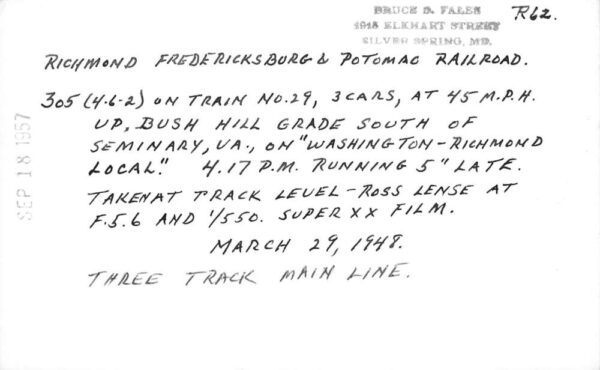 BRUCE D. FALES
1918 ELKHART STREET
SILVER SPRING, MD.
R62.
RICHMOND FREDERICKSBURG & POTOMAC RAILROAD.
305 (4-6-2) ON TRAIN NO.29, 3CARS, AT 45 M.P.H.
UP, BUSH HILL GRADE SOUTH OF
SEMINARY, VA., ON "WASHINGTON-RICHMOND
LOCAL." 4.17 P.M. RUNNING 5" LATE.
TAKENAT TRACK LEVEL-ROSS LENSE AT
F.5.6 AND 1/550. SUPER XX FILM.
MARCH 29, 1948.
THREE TRACK MAIN LINE.
SEP 18 1957